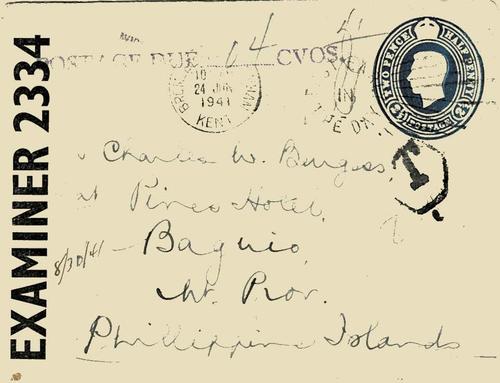 EXAMINER 2334
POSTAGE DUE 14 CVOS
TWO PENCE HALFPENNY
POSTAGE
10
24 JUN
1941
KENT
T
Charles W. Burgess,
at Pines Hotel,
Baguio,
Mt. Prov.
8/30/41
Phillippine Islands